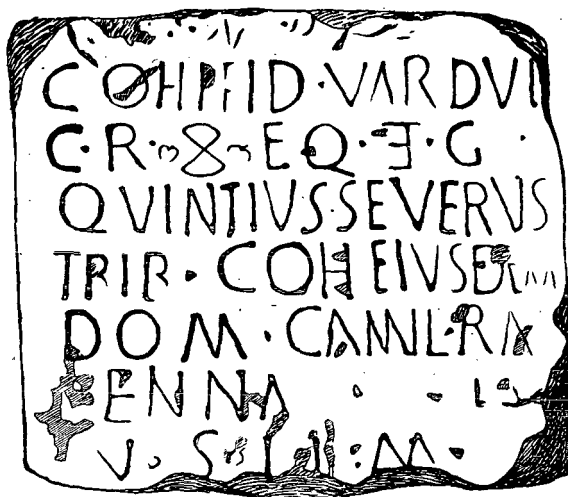 COH P FID · VARDVL
C · R · ∞ · EQ · E · G ·
QVINTIVS · SEVERVS
TRIB · COH EIVSDEM
DOM · CAMIL · RA
ENNA
V · S · L L · M ·